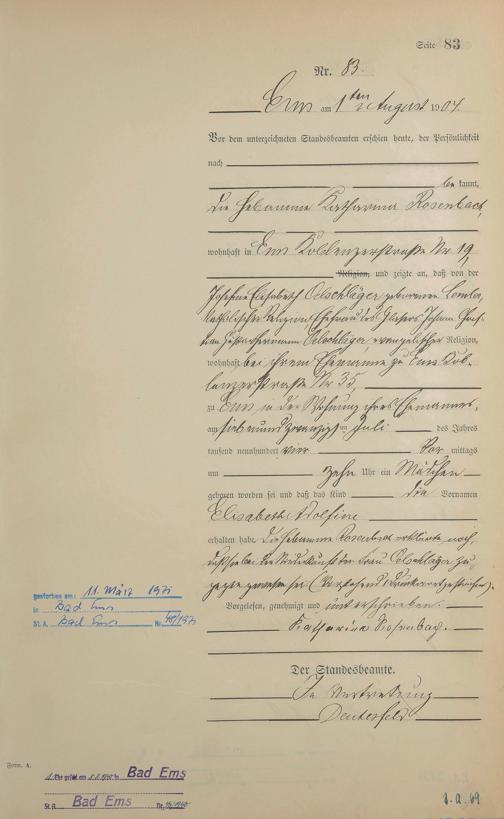 Seite 83
Nr. 83.
Ems am 1ten August 1904.
Vor dem unterzeichneten Standesbeamten erschien heute, der Persönlichkeit
nach
be kannt,
die Hebamme Katharina Rosenbach,
wohnhaft in Ems Koblenzerstraße Nr 19,
Religion, und zeigte an, daß von der
Josefine Elisabeth Oelschläger geborenen
katholischer Religion, Ehefrau des Glasers Johann
Oelschläger, evangelischer Religion,
wohnhaft bei ihrem Ehemanne zu Ems Kob-
lenzerstraße Nr 35,
zu Ems, in der Wohnung ihres Ehemannes,
am siebenundzwanzigsten Juli des Jahres
tausend neunhundert vier Vor mittags
um zehn Uhr ein Mädchen
geboren worden sei und daß das Kind die Vornamen
Elisabeth Adolfine
erhalten habe. Die Hebamme Rosenbach erklärte noch,
daß sie bei der Niederkunft der Frau Oelschläger zu-
gegen gewesen sei (Vorstehend 1 Druckwort gestrichen).
Vorgelesen, genehmigt und unterschrieben.
Katharina Rosenbach.
Der Standesbeamte.
In Vertretung
gestorben am: 11. März 1971
in Bad Ems
St. A. Bad Ems Nr. 48/1971
Form. A.
1. Ehe geschl. am in Bad Ems
St. A. Bad Ems Nr.